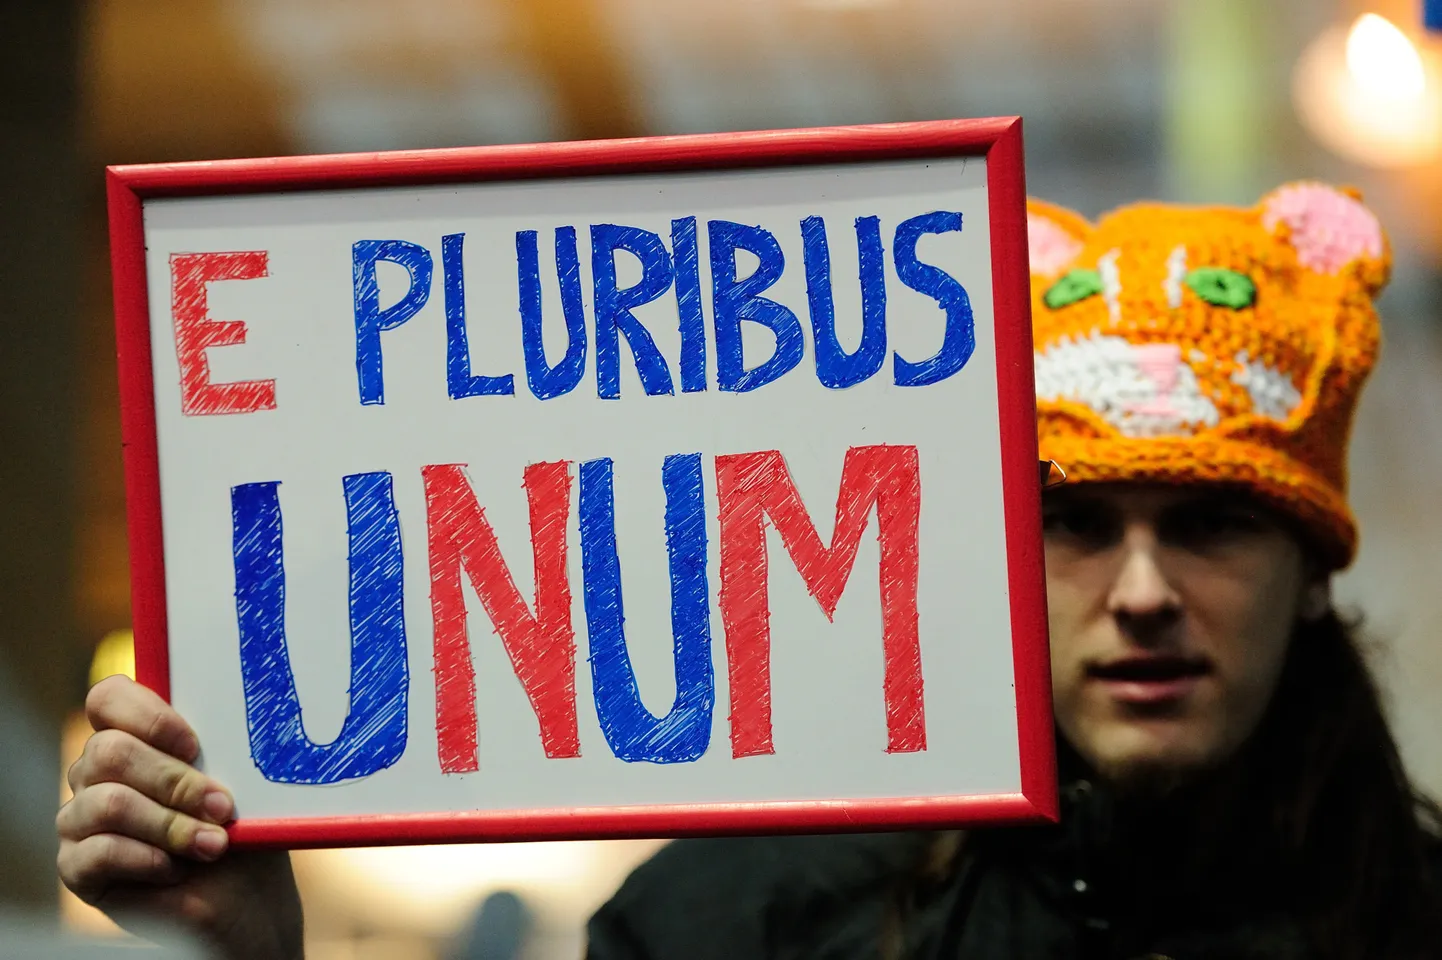 E PLURIBUS
UNUM